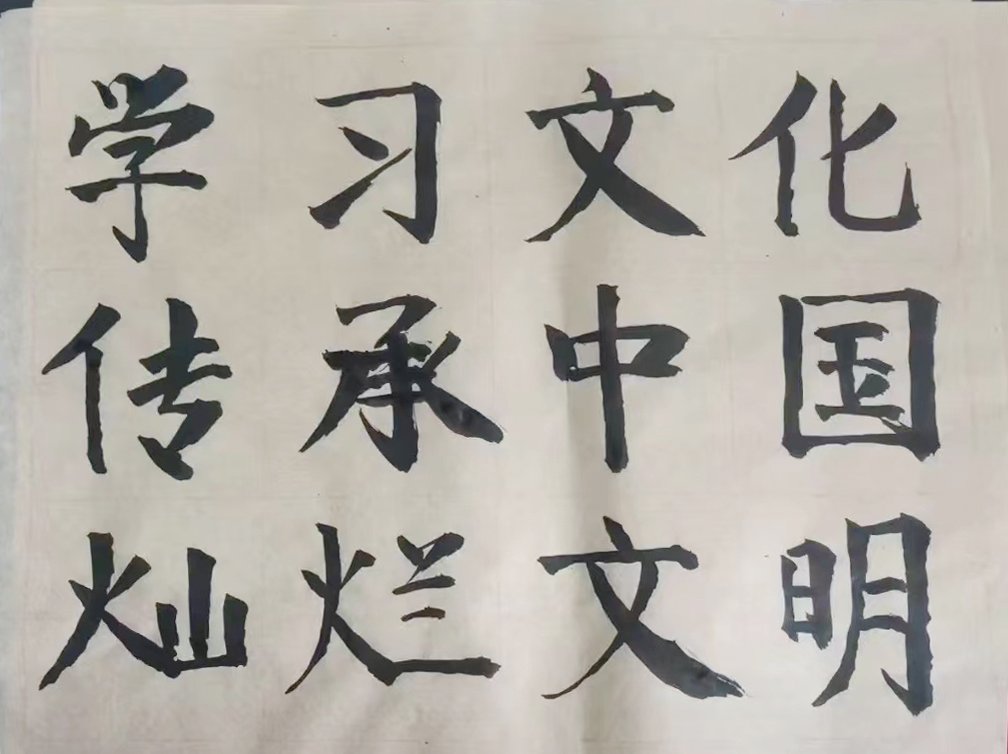 学习文化
传承中国
灿烂文明